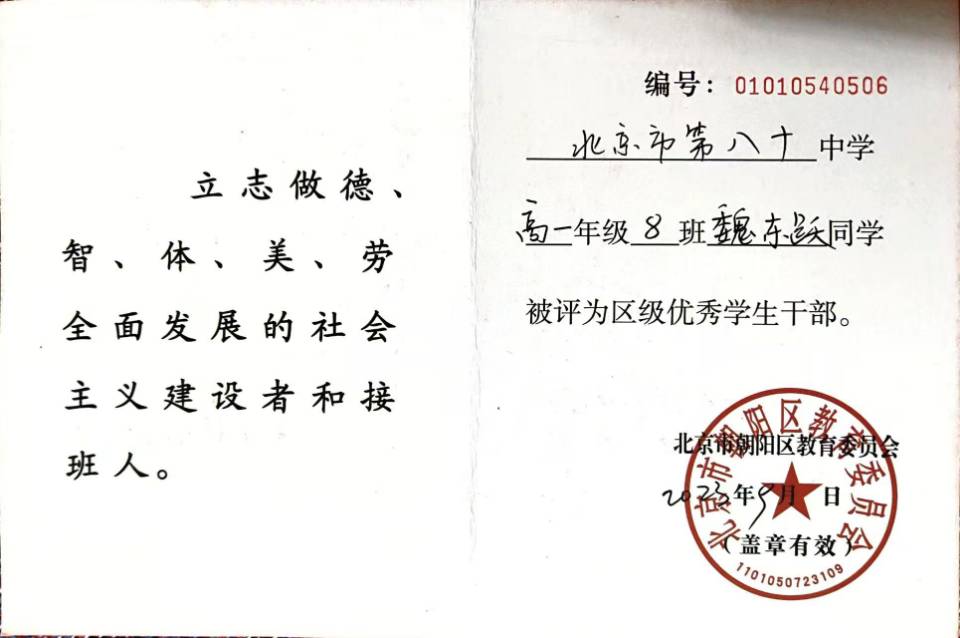 立志做德、
智、体、美、劳
全面发展的社会
主义建设者和接
班人。
编号：01010540506
北京市第八十中学
高一年级8班魏东跃同学
被评为区级优秀学生干部。
北京市朝阳区教育委员会
2023年9月 日
（盖章有效）
北京市朝阳区教育委员会
1101050723109